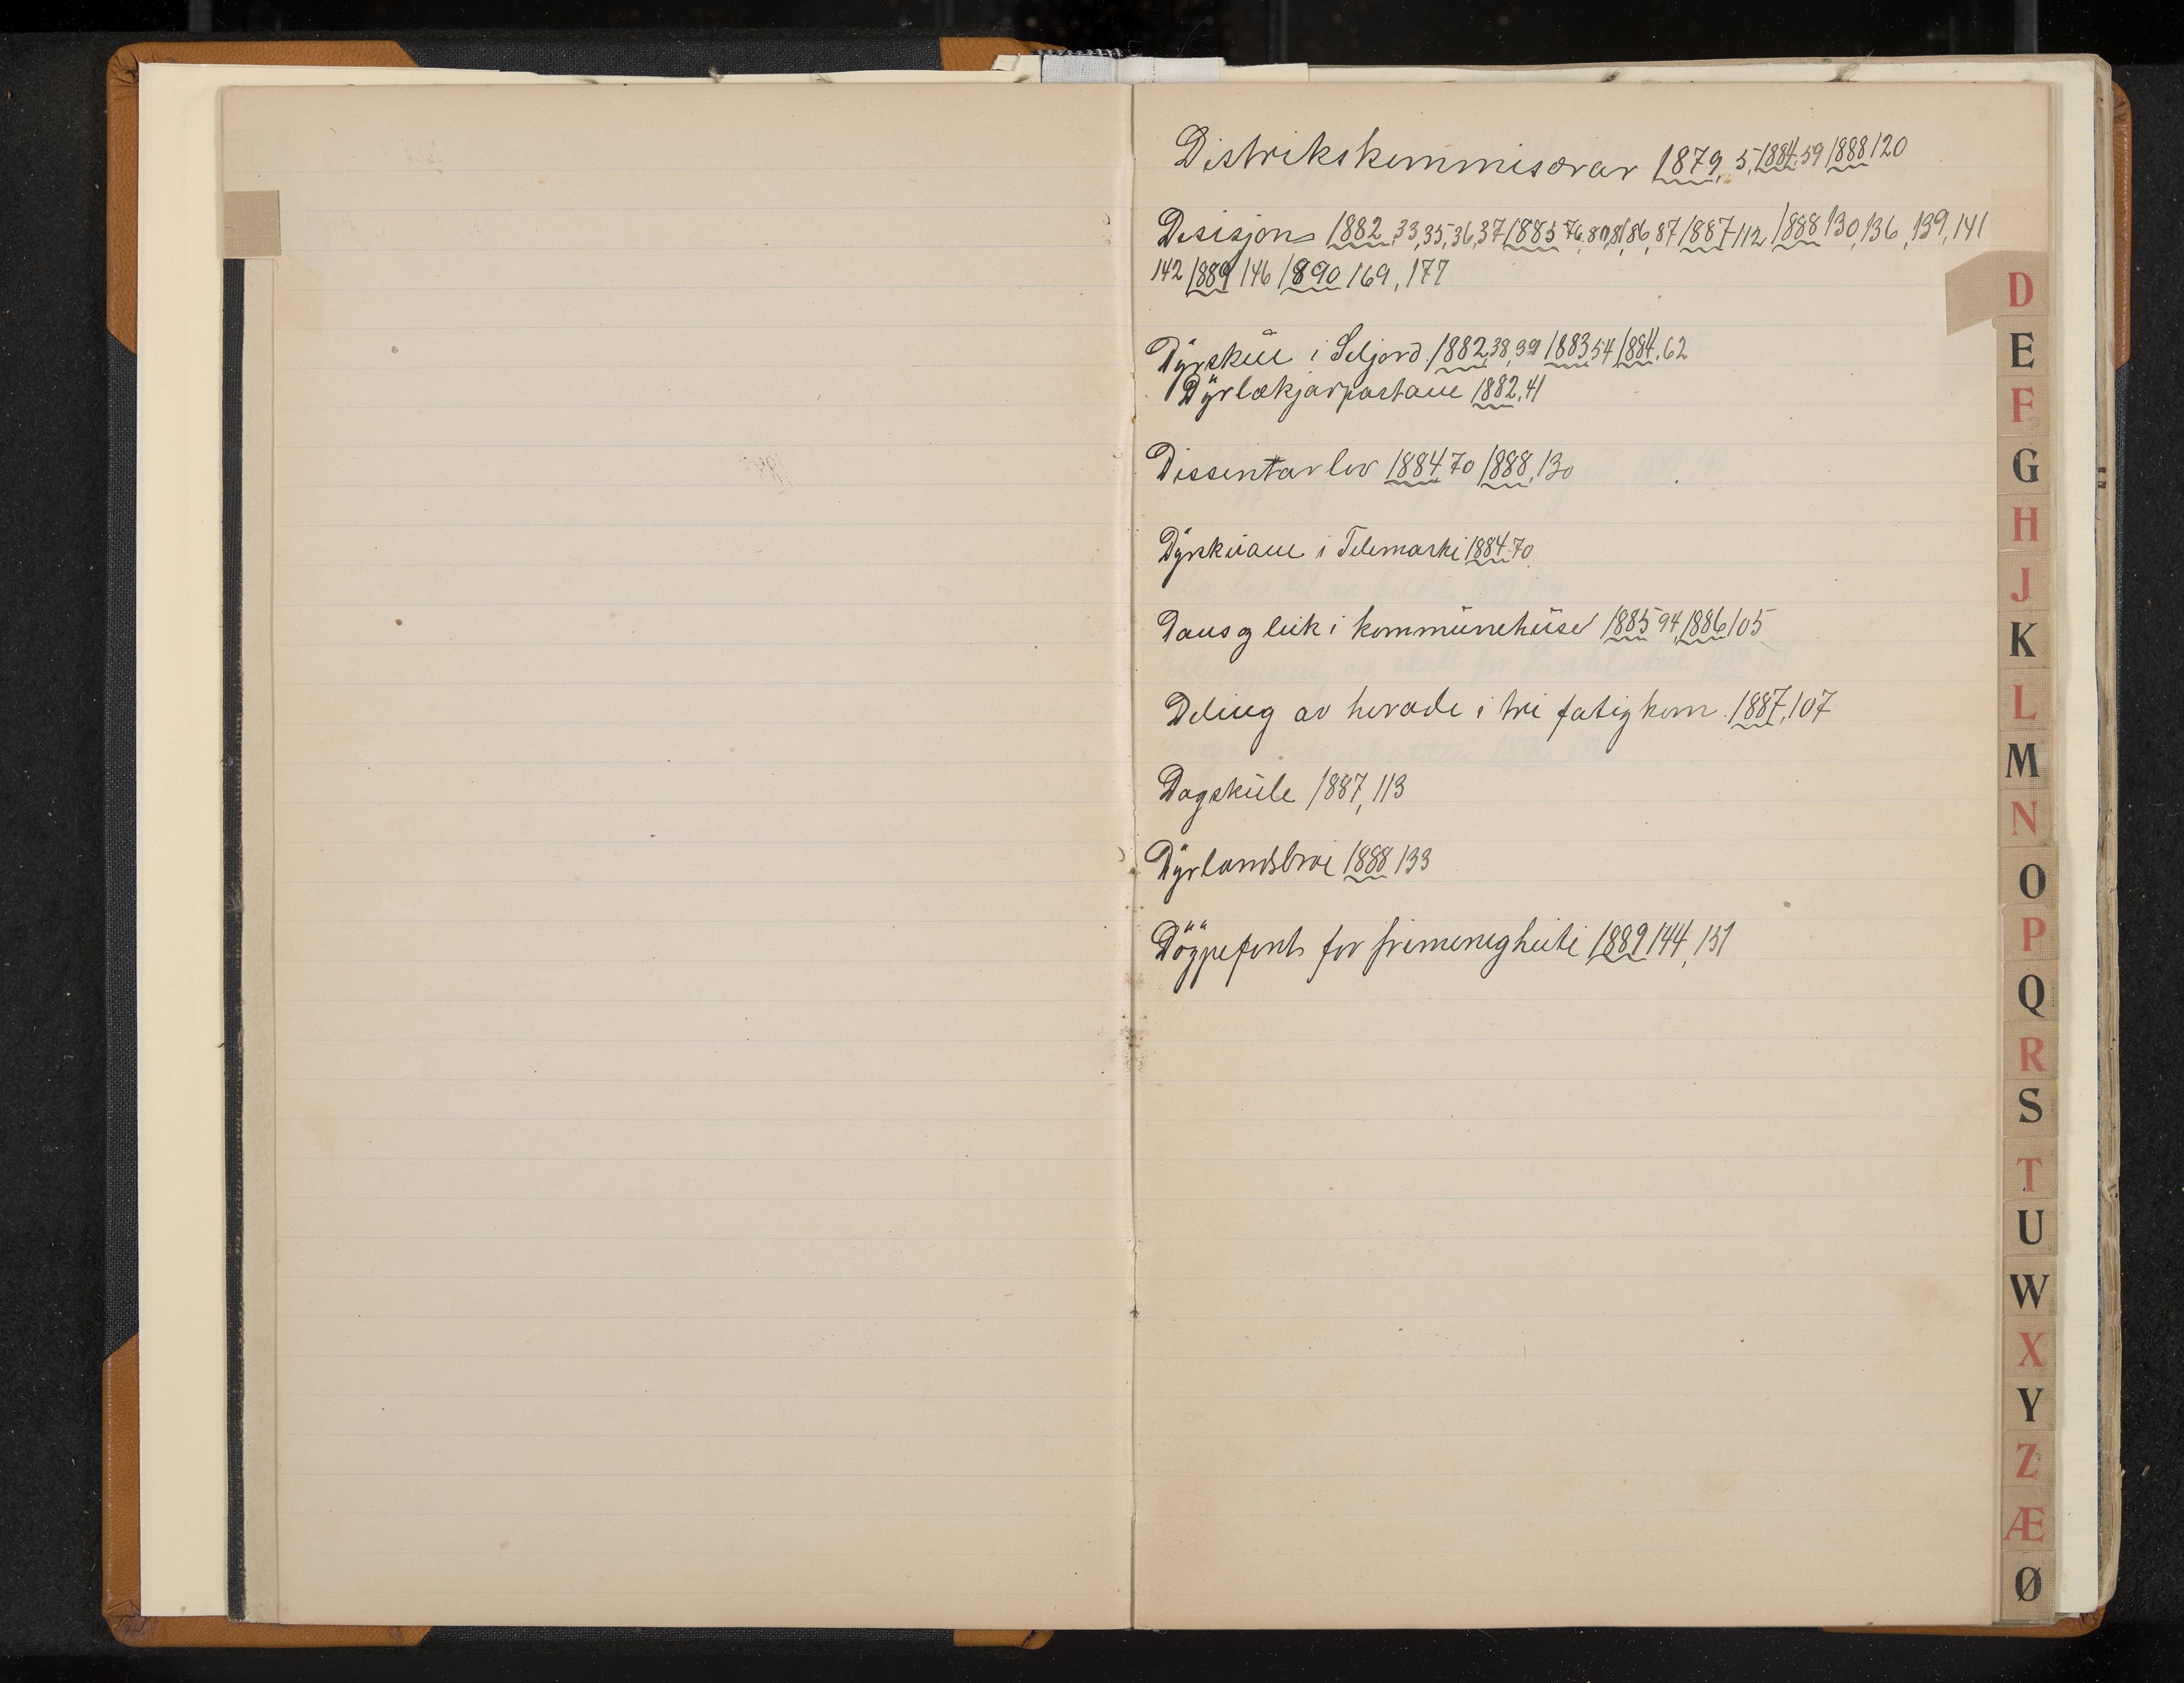 Distrikskommisærar 1879, 5, 1884, 59 1888 120
Desisjons 1882, 33, 35, 36, 37 1885 76, 80, 81 86, 87 1887 112 1888 130, 136, 139, 141
142 1889 146 1890 169, 177
Dyrskue i Seljord. 1882, 38, 39 1883 54 1884, 62
Dyrlækjarpostane 1882, 41
Dissentarlov 1884, 70 1888, 130
Dyrskuane i Telemarki 1884 70
Dans og leik i kommunehuse 1885 94, 1886 105
Deling av herade i tri fatigkom. 1887, 107
Dagskule 1887, 113
Dyrlandsbroi 1888 133
Döypefont for frimenigheiti 1889 144, 151
D
E
F
G
H
J
K
L
M
N
O
P
Q
R
S
T
U
W
X
Y
Z
Æ
Ø